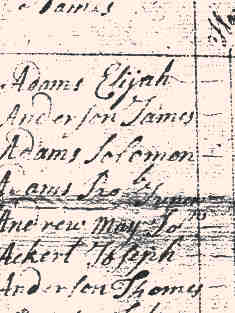 Names
Adams Elijah
Anderson James
Adams Solomon
Adams
Andrew May Jos
Ackert Joseph
Anderson Thomes